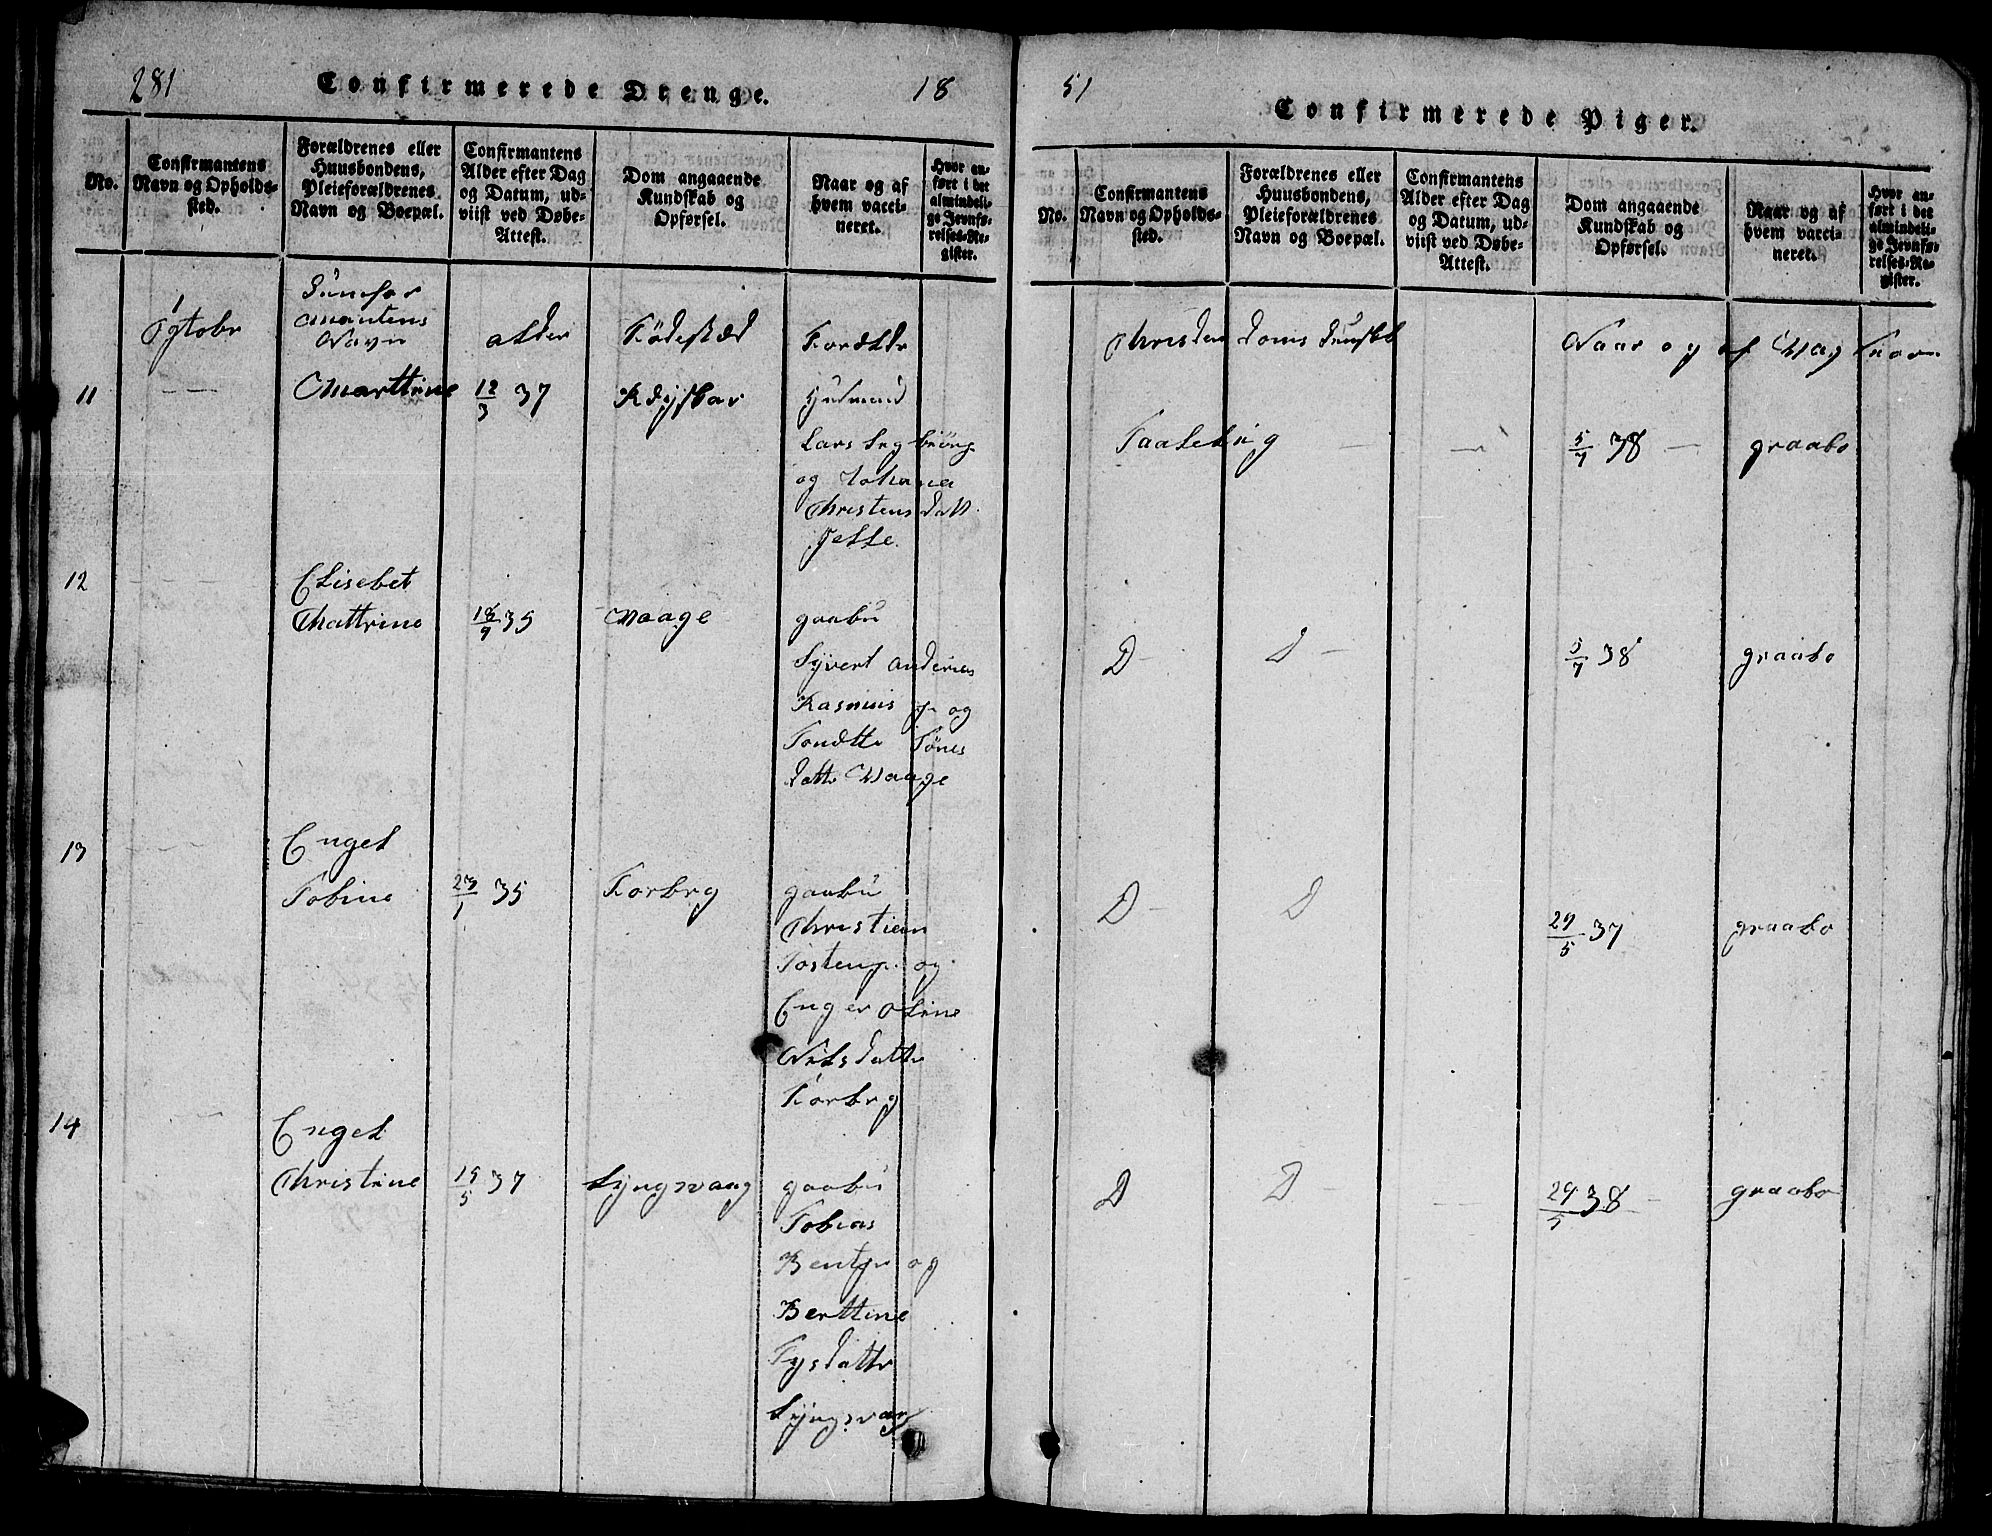 281 Confirmerede Drenge. 18
No.
Confirmantens
Navn og Opholds-
sted.
Forældrenes eller
Huusbondens,
Pleieforældrenes
Navn og Boepæl.
Confirmantens
Alder efter Dag
og Datum, ud-
viist ved Døbe-
Attest.
Dom angaaende
Kundskab og
Opførsel.
Naar og af
hvem vacci-
neret.
Hvor an-
ført i det
almindeli-
ge Jevnfø-
relses-Re-
gister.
Navn
alder Födestæd Forældr
11 Marttine 12/3 37 Røysbar Husmand
Lars Segbiörns
og Johana
Christensdatt
12 Elisebet
Thattrine 18/9 35 Vaage gaabr
Syvert andersen
Rasmus og
Tønes
datte Vaage
13 Engel
Tobine 23/1 35 Forbrg gaabr
Christien
Tostensen og
Enger oline
Nilsdatte
Forbrg
14 Engel
Christine 15/5 37 Lyngsvaag gaabr
Tobias
Bentsen og
Berttine
datte
Lyngsvag
51 Confirmerede Piger.
No.
Confirmantens
Navn og Opholds-
sted.
Forældrenes eller
Huusbondens,
Pleieforældrenes
Navn og Boepæl.
Confirmantens
Alder efter Dag
og Datum, ud-
viist ved Døbe-
Attest.
Dom angaaende
Kundskab og
Opførsel.
Naar og af
hvem vacci-
neret.
Hvor an-
ført i det
almindeli-
ge Jevnfø-
relses-Re-
gister.
Christen doms Naar og af
Taalelig 5/7 38 graabo
D D 5/7 38 graabo
D D 29/5 37 graabo
D D 29/5 38 graabo